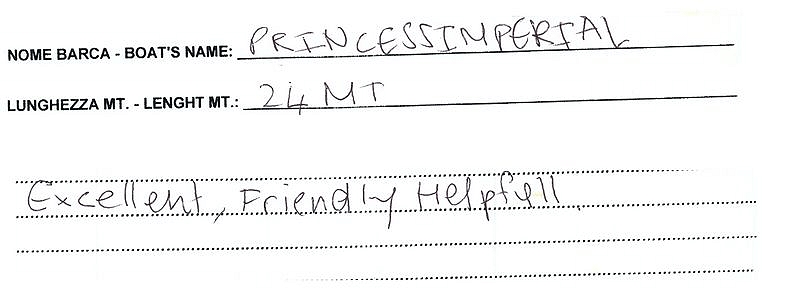 NOME BARCA - BOAT'S NAME: PRINCESSIMPERIAL
LUNGHEZZA MT. - LENGHT MT.: 24 MT
Excellent, Friendly Helpfull.